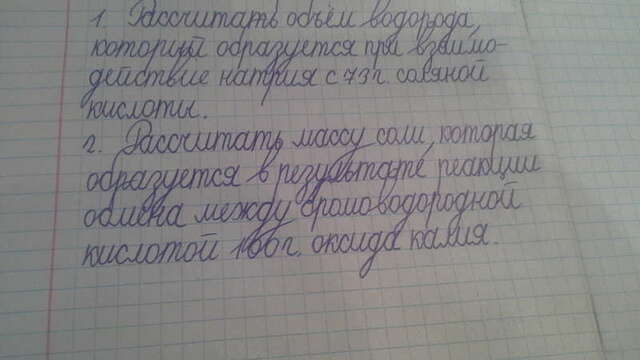 1. Рассчитать объём водорода,
который образуется при взаимо-
действие натрия с 73 г. соляной
кислоты.
2. Рассчитать массу соли, которая
образуется в результате реакции
обмена между бромоводородной
кислотой г. оксида калия.